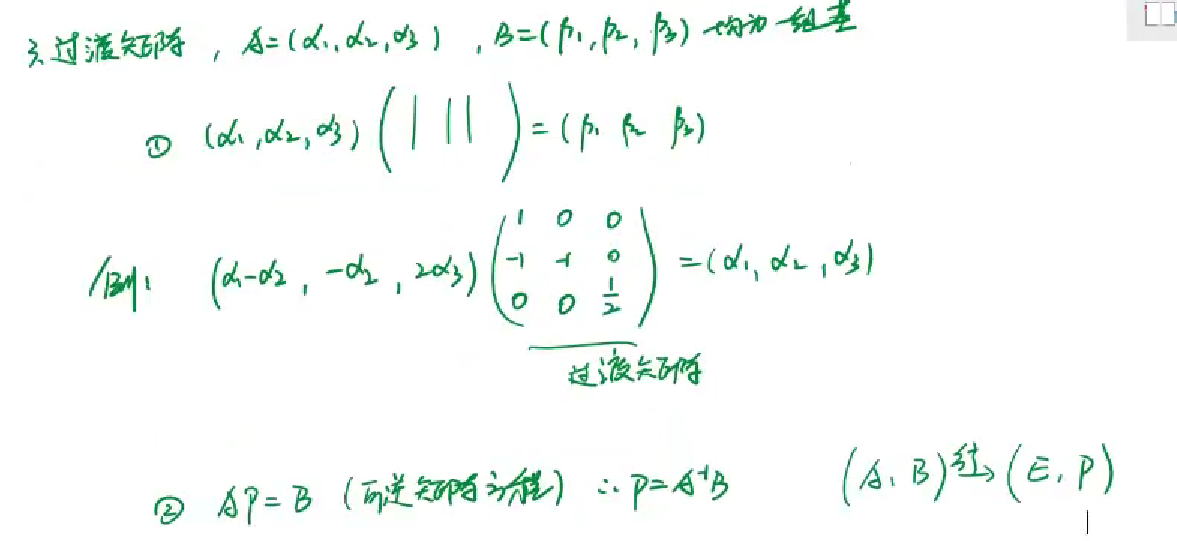 3. 过渡矩阵, A=(α₁,α₂,α₃), B=(β₁,β₂,β₃) 均为一组基
① (α₁,α₂,α₃)( | | | )=(β₁ β₂ β₃)
例: (α₁-α₂, -α₂, 2α₃)(1 0 0; -1 -1 0; 0 0 1/2)=(α₁, α₂, α₃)
过渡矩阵
② AP=B (可逆矩阵方程) ∴P=A⁻¹B (A, B)→(E, P)